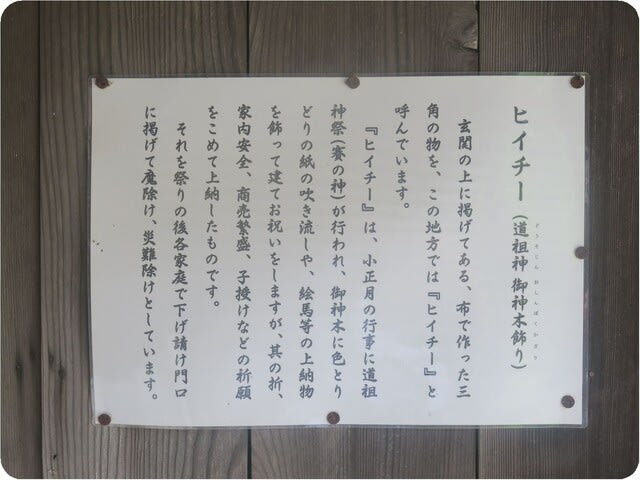 ヒイチー（道祖神 御神木飾り）
どうそじん おしんぼくかざり
玄関の上に掲げてある、布で作った三
角の物を、この地方では『ヒイチー』と
呼んでいます。
『ヒイチー』は、小正月の行事に道祖
神祭（賽の神）が行われ、御神木に色とり
どりの紙の吹き流しや、絵馬等の上納物
を飾って建てお祝いをしますが、其の折、
家内安全、商売繁盛、子授けなどの祈願
をこめて上納したものです。
それを祭りの後各家庭で下げ請け門口
に掲げて魔除け、災難除けとしています。